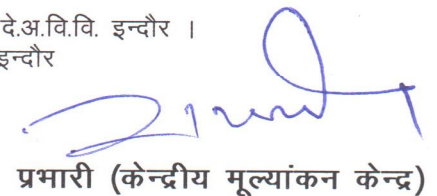 दे.अ.वि.वि. इन्दौर ।
इन्दौर
प्रभारी (केन्द्रीय मूल्यांकन केन्द्र)